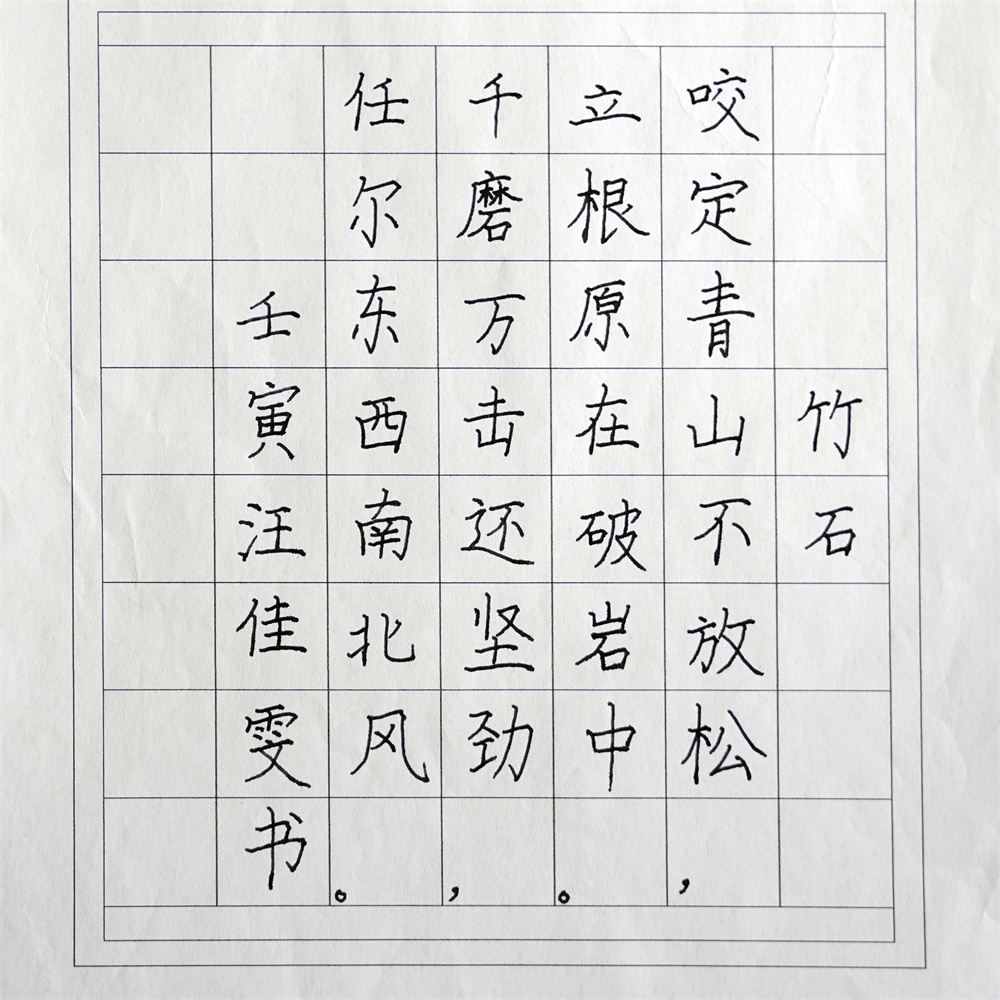 竹石
咬定青山不放松，
立根原在破岩中。
千磨万击还坚劲，
任尔东西南北风。
壬寅汪佳雯书